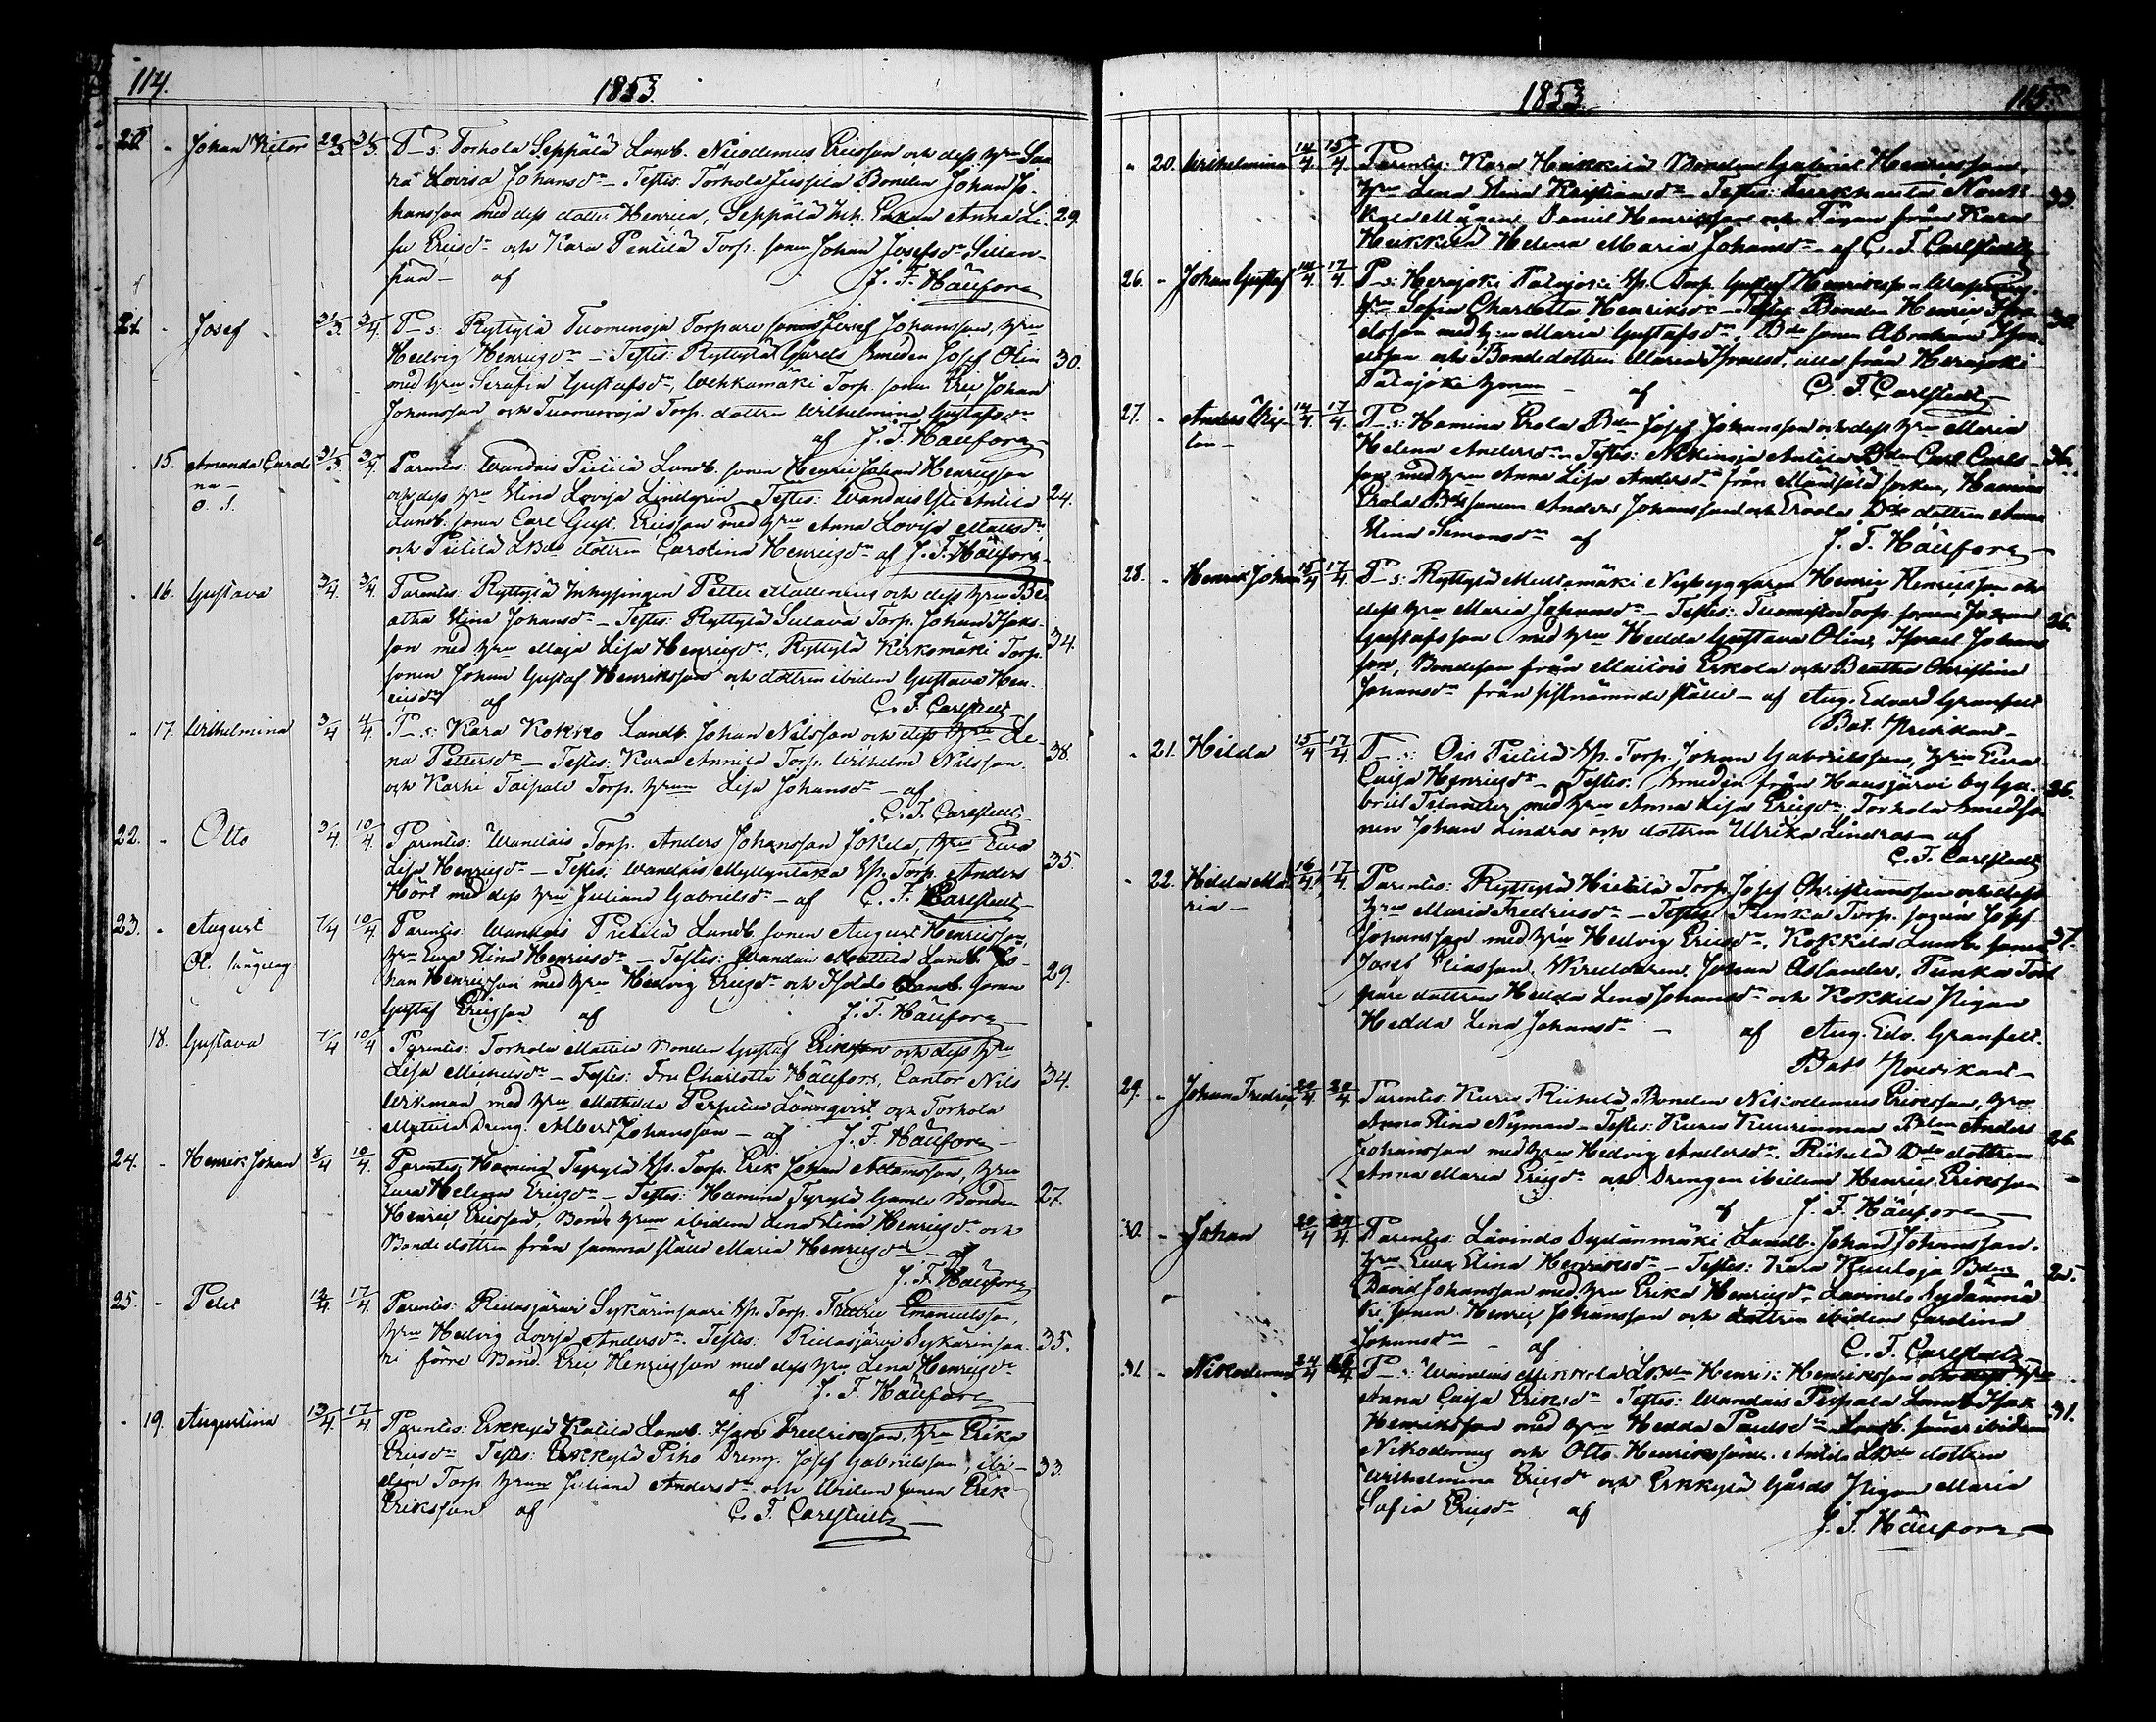 114.
1853.
20. - Johan Victor 29/3. 31/3. P_s: Torhola Seppälä Landb. Nicodemus Ericsson och dess hru Sa-
ra Lovisa Johansdr – Testes: Torhola Jussila Bonden Johan Jo-
hansson med dess dotter Henrica, Seppälä Inh. Enkan Anna Li- 29.
sa Ericsdr och Kara Pentilä Torp. sonen Johan Josefsson
från – af J. F. Häufore
21. - Josef 31/3. 3/4. P_s: Ryttylä Tuomenoja Torpare sonen Josef Johansson, hru
Hedvig Henricsdr – Testes: Ryttylä Gårds Smeden Josef Olin 30.
med hru Serafia Gustafsdr, Torp. sonen Eric Johan
Johansson och Tuomenoja Torp. dottren Wilhelmina Gustafsdr
af J. F. Häufore
- 15. Amanda Caroli- 31/3. 3/4. Parentes: Wandais Pietilä Landb. sonen Henric Johan Henricsson
na –
och dess hru Stina Lovisa Lindqvin – Testes: Wandais Antila 24.
Landb. sonen Carl Gust. Ericsson med hru Anna Lovisa Mattsdr
och Pietilä LBds dottren Carolina Henricsdr af J. F. Häufore
- 16. Gustava 3/4. 3/4. Parentes: Ryttylä Inhysingen Petter Mattenius och dess hru Be-
atha Stina Johansdr – Testes: Ryttylä Torp. Johan Isaks- 34.
son med hru Maja Lisa Henricsdr, Ryttylä Kirkomäki Torp.
sonen Johan Gustaf Henriksson och dottren ibidem Gustava Hen-
ricsdr af C. F. Carlstedt
- 17. Wilhelmina 3/4 4/4 P_s: Kara Kokko Landb. Johan Nilsson och dess hru Le-
na Pettersdr – Testes: Kara Annila Torp. Wilhelm Nilsson 38.
och Karhi Taipale Torp. hrun Lisa Johansdr – af
C. F. Carlstedt
22. - Otto 3/4. 10/4. Parentes: Wandais Torp. Anders Johansson Jokela, hru Eva
Lisa Henricsdr – Testes: Wandais Myllyntaka Sp. Torp. Anders 35.
Hört med dess hru Juliana Gabrielsdr – af C. F. Carlstedt
23. - August 7/4 10/4. Parentes: Wandais Pietilä Landb. sonen August Henricsson,
hru Eva Stina Henricsdr – Testes: Wandais Mattila Landb. Jo-
han Henricsson med hru Hedvig Ericsdr och Landb. sonen 29.
Gustaf Ericsson af J. F. Häufore
18. Gustava 7/4 10/4 Parentes: Torhola Mattila Bonden Gustaf Ericsson och dess hru
Lisa Michelsdr – Testes: Fru Charlotta Häufore, Cantor Nils 34.
Wikman med hru Mathilda Perpetua Lönnqvist och Torhola
Mattila Dreng. Albert Johansson – af J. F. Häufore
24. - Henrik Johan 8/4 10/4. Parentes: Hamina Tyrylä Sp. Torp. Erik Johan Adamsson, hru
Eva Helena Ericsdr – Testes: Hamina Tyrylä Gamle Bonden 27.
Henric Ericsson, Bond. hrun ibidem Lena Stina Henricsdr och
Bonde dottren från samma ställe Maria Henricsdr – af
J. F. Häufore
25. - Peter 12/4. 17/4. Parentes: Ridasjärvi Sykärinsaari Sp. Torp. Fredric Emanuelsson,
hru Hedvig Lovisa Andersdr. Testes: Ridasjärvi Sykärinsaa- 35.
ri förre Bond. Eric Henricsson med dess hru Lena Henricsdr
af J. F. Häufore
- 19. Augustina 13/4. 17/4. Parentes: Erkkylä Landb. Isac Fredricsson, hru Erika
Ericsdr Testes: Erkkylä Piho Dreng. Josef Gabrielsson, ibi- 33.
dem Torp. hrun Juliana Andersdr och ibidem sonen Erik
Eriksson af C. F. Carlstedt
1853.
115.
- 20. Wilhelmina 14/4. 15/4. Parentes: Kara Heikkilä Bonden Gabriel Henricsson,
hru Lena Stina Kristiansdr – Testes: 33.
Mågen Daniel Henriksson och Pigan från Kara
Heikkilä Helena Maria Johansdr – af C. F. Carlstedt
26. - Johan Gustaf 14/4. 17/4. P_s: Herajoki Palojoki Sp. Torp. Gustaf Henriksson
hru Sofia Charlotta Henriksdr – Testes: Bonden Henric 30.
med hru Maria Gustafsdr, Bde sonen Abraham
och Bonde dottren Maria alla från Herajoki
Palojoki af C. F. Carlstedt
27. - Anders Wik- 14/4. 17/4. P_s: Hamina Erola Bdn Josef Johansson och dess hru Maria
tor –
Helena Andersdr – Testes: Nikinoja Antila Bdn Carl Carls- 36.
son med hru Anna Lisa Andersdr från Mäntsälä socken, Hamina
Erola Bds sonen Anders Johansson och Erola Bds dottren Anna
Stina Simonsdr af J. F. Häufore
28. - Henrik Johan 15/4 17/4. P_s: Ryttylä Mustamäki Nybyggaren Henric Henricsson och
dess hru Maria Johansdr – Testes: Torp. sonen Johan 26.
Gustafsson med hru Hedda Gustava Olin, Israel Johans-
son, Bondeson från Maitois Erkola och Beatha Christina
Johansdr från sistnämnde ställe – af Aug. Edvard Granfelt
Bat. Predikant –
- 21. Hilda 15/4 17/4. P_s: Ois Pietilä Sp. Torp. Johan Gabrielsson, hru Eva
Caisa Henricsdr – Testes: Smeden från Hausjärvi by Ga- 26.
briel Tilander med hru Anna Lisa Ericsdr Torhola Smed so-
nen Johan Lindros och dottren Ulrika Lindros – af
C. F. Carlstedt
- 22. Hilda Ma- 16/4. 17/4. Parentes: Ryttylä Hietilä Torp. Josef Christiansson och dess
ria –
hru Maria Fredricsdr – Testes: Punka Torp. sonen Josef
Johansson med hru Hedvig Ericsdr, Kokkila Landb. sonen 37.
Josef Eliasson, Skreddaren Johan Aslander, Punka Tor-
pare dottren Hedda Lena Johansdr och Kokkila Pigan
Hedda Lena Johansdr – af Aug. Edv. Granfelt.
Bats Predikant –
29. - Johan Fredric 20/4. 24/4. Parentes: Kuru Riihelä Bonden Nikodemus Ericsson, hru
Anna Stina Nyman – Testes: Kuru Bdn Anders 26
Johansson med hru Hedvig Andersdr. Riihelä Bds dottren
Anna Maria Ericsdr och Drengen ibidem Henric Eriksson
af J. F. Häufore
30. - Johan 20/4 24/4. Parentes: Lavinto Sydänmäki Landb. Johan Johansson,
hru Eva Stina Henricsdr – Testes: Kara Bdn 25.
David Johansson med hru Erika Henricsdr Lavinto Sydänmä-
ki sonen Henric Johansson och dottren ibidem Carolina
Johansdr – af C. F. Carlstedt
31. - Nikodemus 24/4 P_s: Wandais LBdn Henric Henriksson och dess hru
Anna Caisa Ericsdr Testes: Wandais Perpala Landb. Isak 31.
Henriksson med hru Hedda Paulsdr Landb. söner ibidem
Nikodemus och Otto Henrikssöner. Antila LBds dottren
Wilhelmina Ericsdr och Erkkylä Gårds Pigan Maria
Sofia Ericsdr af
J. F. Häufore